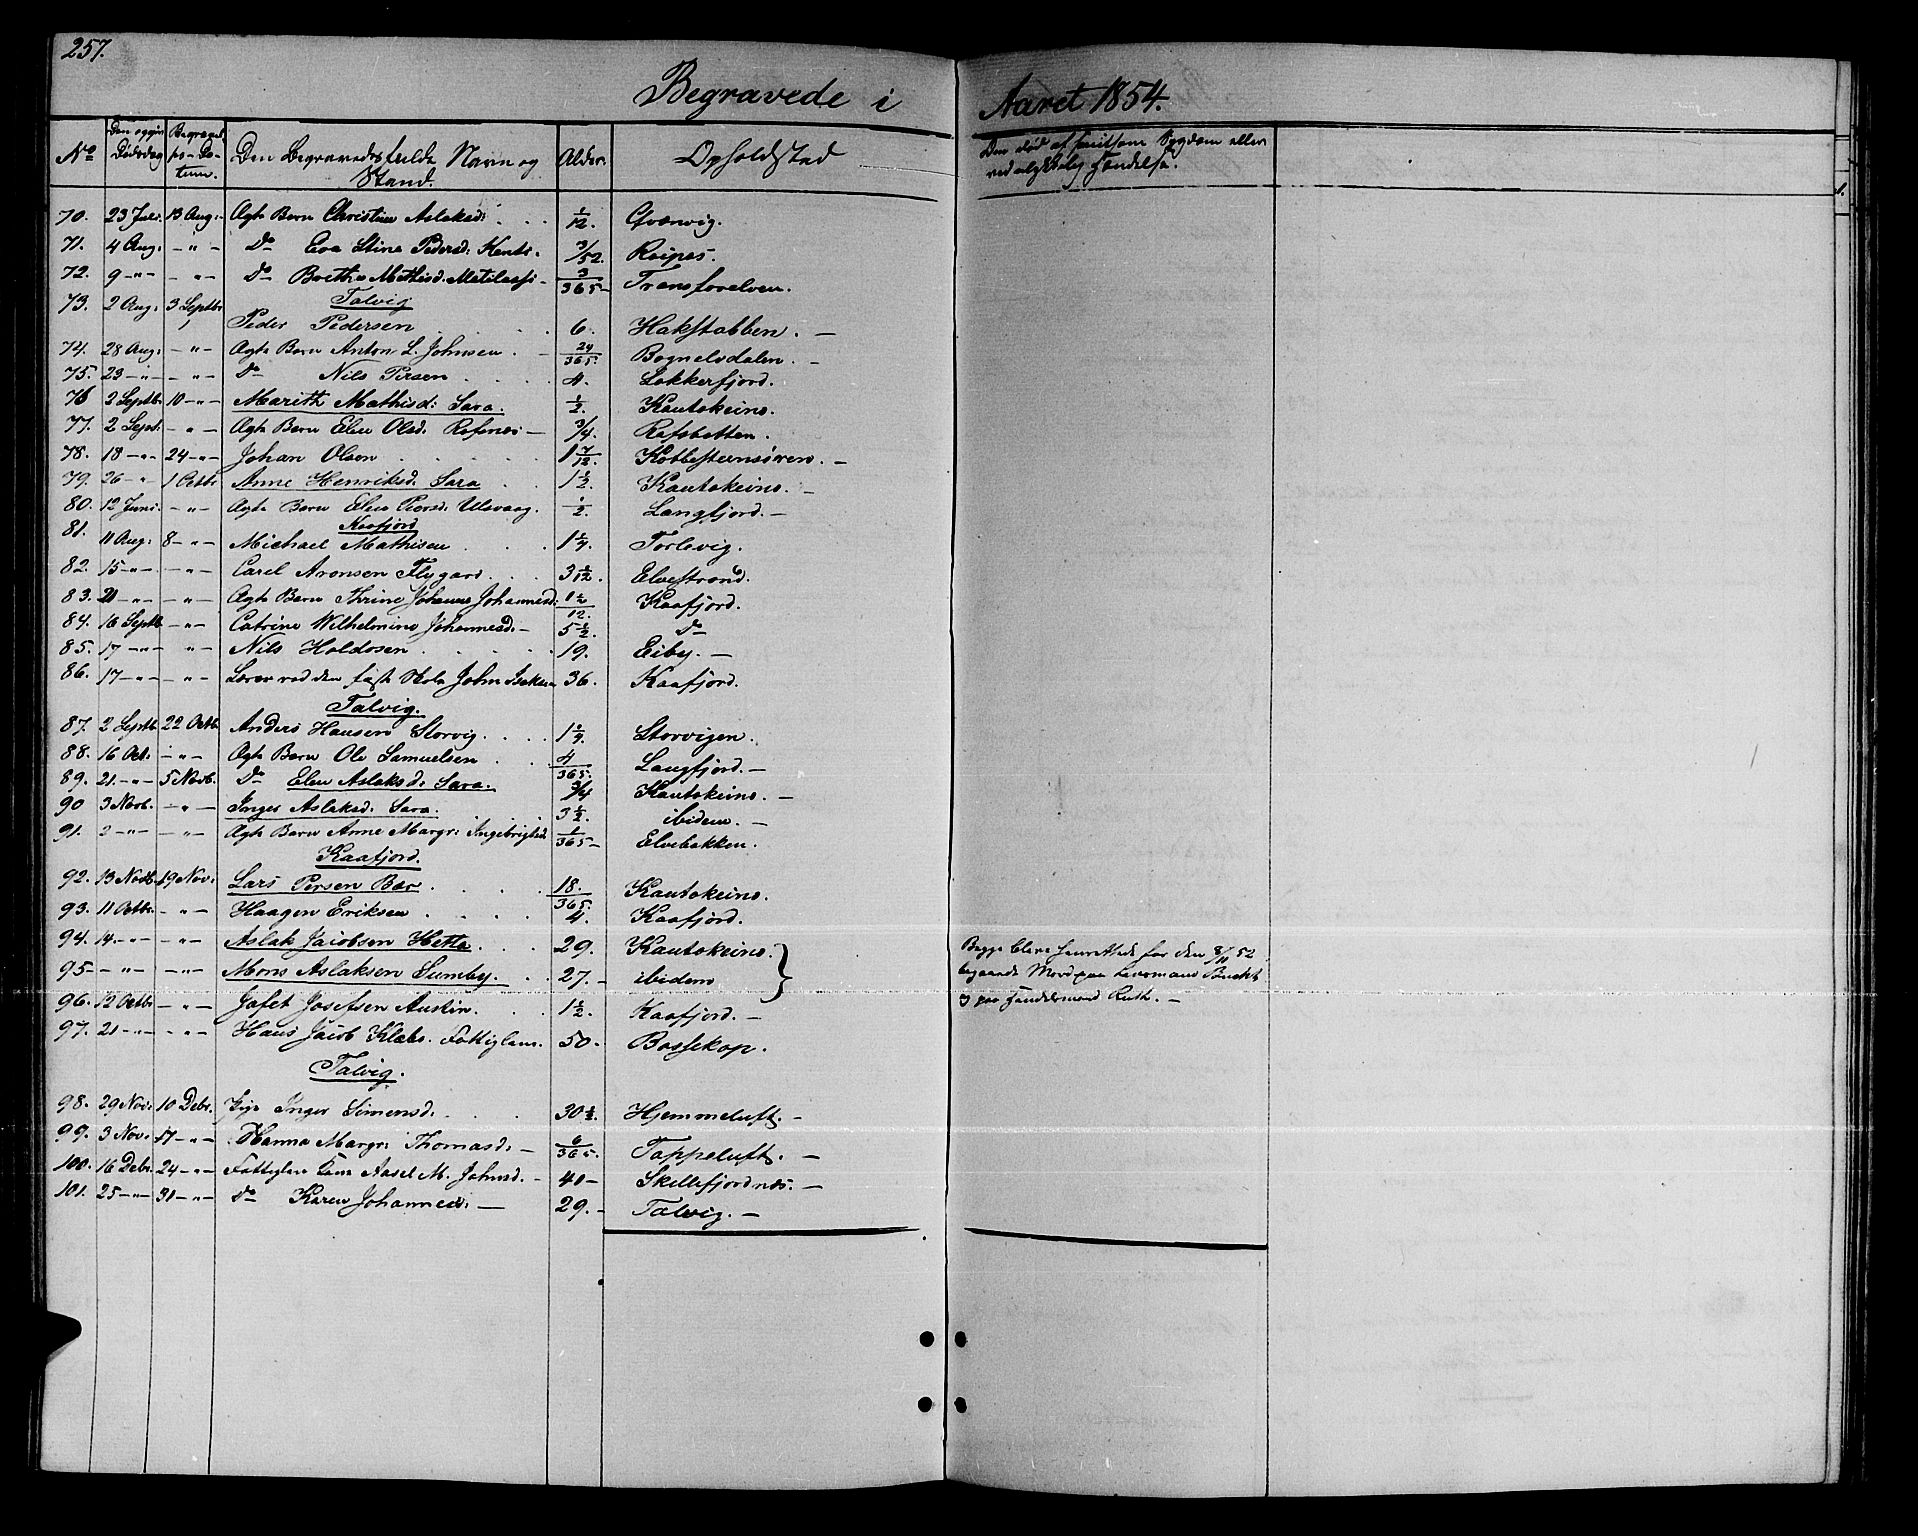 257.
Begravede i Aaret 1854.
No Den opgivne Dødsdag Begravelses-Datum. Den Begravedes fulde Navn og Stand. Alder. Opholdsted Om død af smitsom Sygdom eller ved ulykkelig Hændelse.
70. 23 Juli. 13 Aug: Ægte Barn Christine Aslaksd: 1/12. Qvænvig.
71. 4 Aug: - " - Do Eva Stine Pedersd: Kents. 3/52. Raipas.
72. 9 - " - - " - Do Berthe Mathisd. Matilassi - 3/365 - Transfarelven.
Talvig
73. 2 Aug: 3 Septbr Peder Pedersen 6. Hakstabben. -
74. 28 Aug: - " - Ægte Barn Anton L. Johnsen. - 24/365. Bognelvdalen. -
75. 23 - " - - " - Do Nils Persen 4. Lokkerfjord.
76 2 Septbr. 10 - " - Marith Mathisd: Sara. 1/2. Kautokeino.
77. 2 Sept: - " - Ægte Barn Elen Olsd: Refsnes - 3/4. Rafsbotten.
78. 18 - " - 24 - " - Johan Olsen 1 7/12. Kobbesteensøren. -
79. 26 - " 1 Octbr Anne Henriksd: Sara 1 1/2. Kautokeino. -
80. 12 Juni. - " - Ægte Barn Elen Piersd: Ulsvaag. 1/2. Langfjord. -
Kaafjord
81. 11 Aug: 8 - " - Michael Mathisen 1 1/4. Torlevig.
82. 15 - " - - " - Carel Aronsen Flygare. 3 1/12. Elvestrand.
83. 21 - " - - " - Ægte Barn Thrine Johanne Johannesd: 1 1/2/12. Kaafjord.
84. 16 Septb - " - Catrine Wilhelmine Johannesd: - 5 1/2. Do
85. 17 - " - - " - Nils Holdosen 19. Eiby. -
86. 17 - " - - " - Lærer ved den faste Skole John Isaksen 36. Kaafjord.
Talvig.
87. 2 Septb. 22 Octb. Anders Hansen Storvig. 1 1/4. Storvigen.
88. 16 Oct: - " - Ægte Barn Ole Samuelsen 4/365. Langfjord. -
89. 21 - " - 5 Novb. Do Elen Aslaksd: Sara. 3/4 Kautokeino. -
90 3 Novb. - " - Inger Aslaksd: Sara. 3 1/2. ibidem. -
91. 2 - " - - " - Ægte Barn Anne Margr: Ingebrigtsd: 1/365 - Elvebakken.
Kaafjord.
92. 13 Novb. 19 Nov: Lars Persen Bær 18./365. Kautokeino.
93. 11 Octbr. - " - Haagen Eriksen 4. Kaafjord.
94. 14. - " - - " - Aslak Jacobsen Hetta 29. Kautokeino. } Begge bleve henrettede for den 8/11 52
95 - - " - - " - Mons Aslaksen Sumby. 27. - ibidem begaaede Mord paa Lensmand Bucht
96. 12 Octbr - " - Jafet Josefsen Austin. 1 1/2. Kaafjord. - og paa Handelsmand Ruth. -
97. 21 - " - - " - Hans Jacob Klæbo. Fattiglem. 50. Bossekop.
Talvig.
98. 29 Nov: 10 Debr. Pige Inger Simensd. 30 1/2. Hjemmeluft. -
99. 3 Nov. 17 - " - Hanna Margr: Thomasd: - 6/365. Tappeluft. -
100. 16 Debr. 24 - " - Fattiglem Enke Aasel M. Johnsd. - 40 - Skillefjordnæs. -
101. 25 - " - 31 - " - Do Karen Johannesd: - 29. - Talvig. -